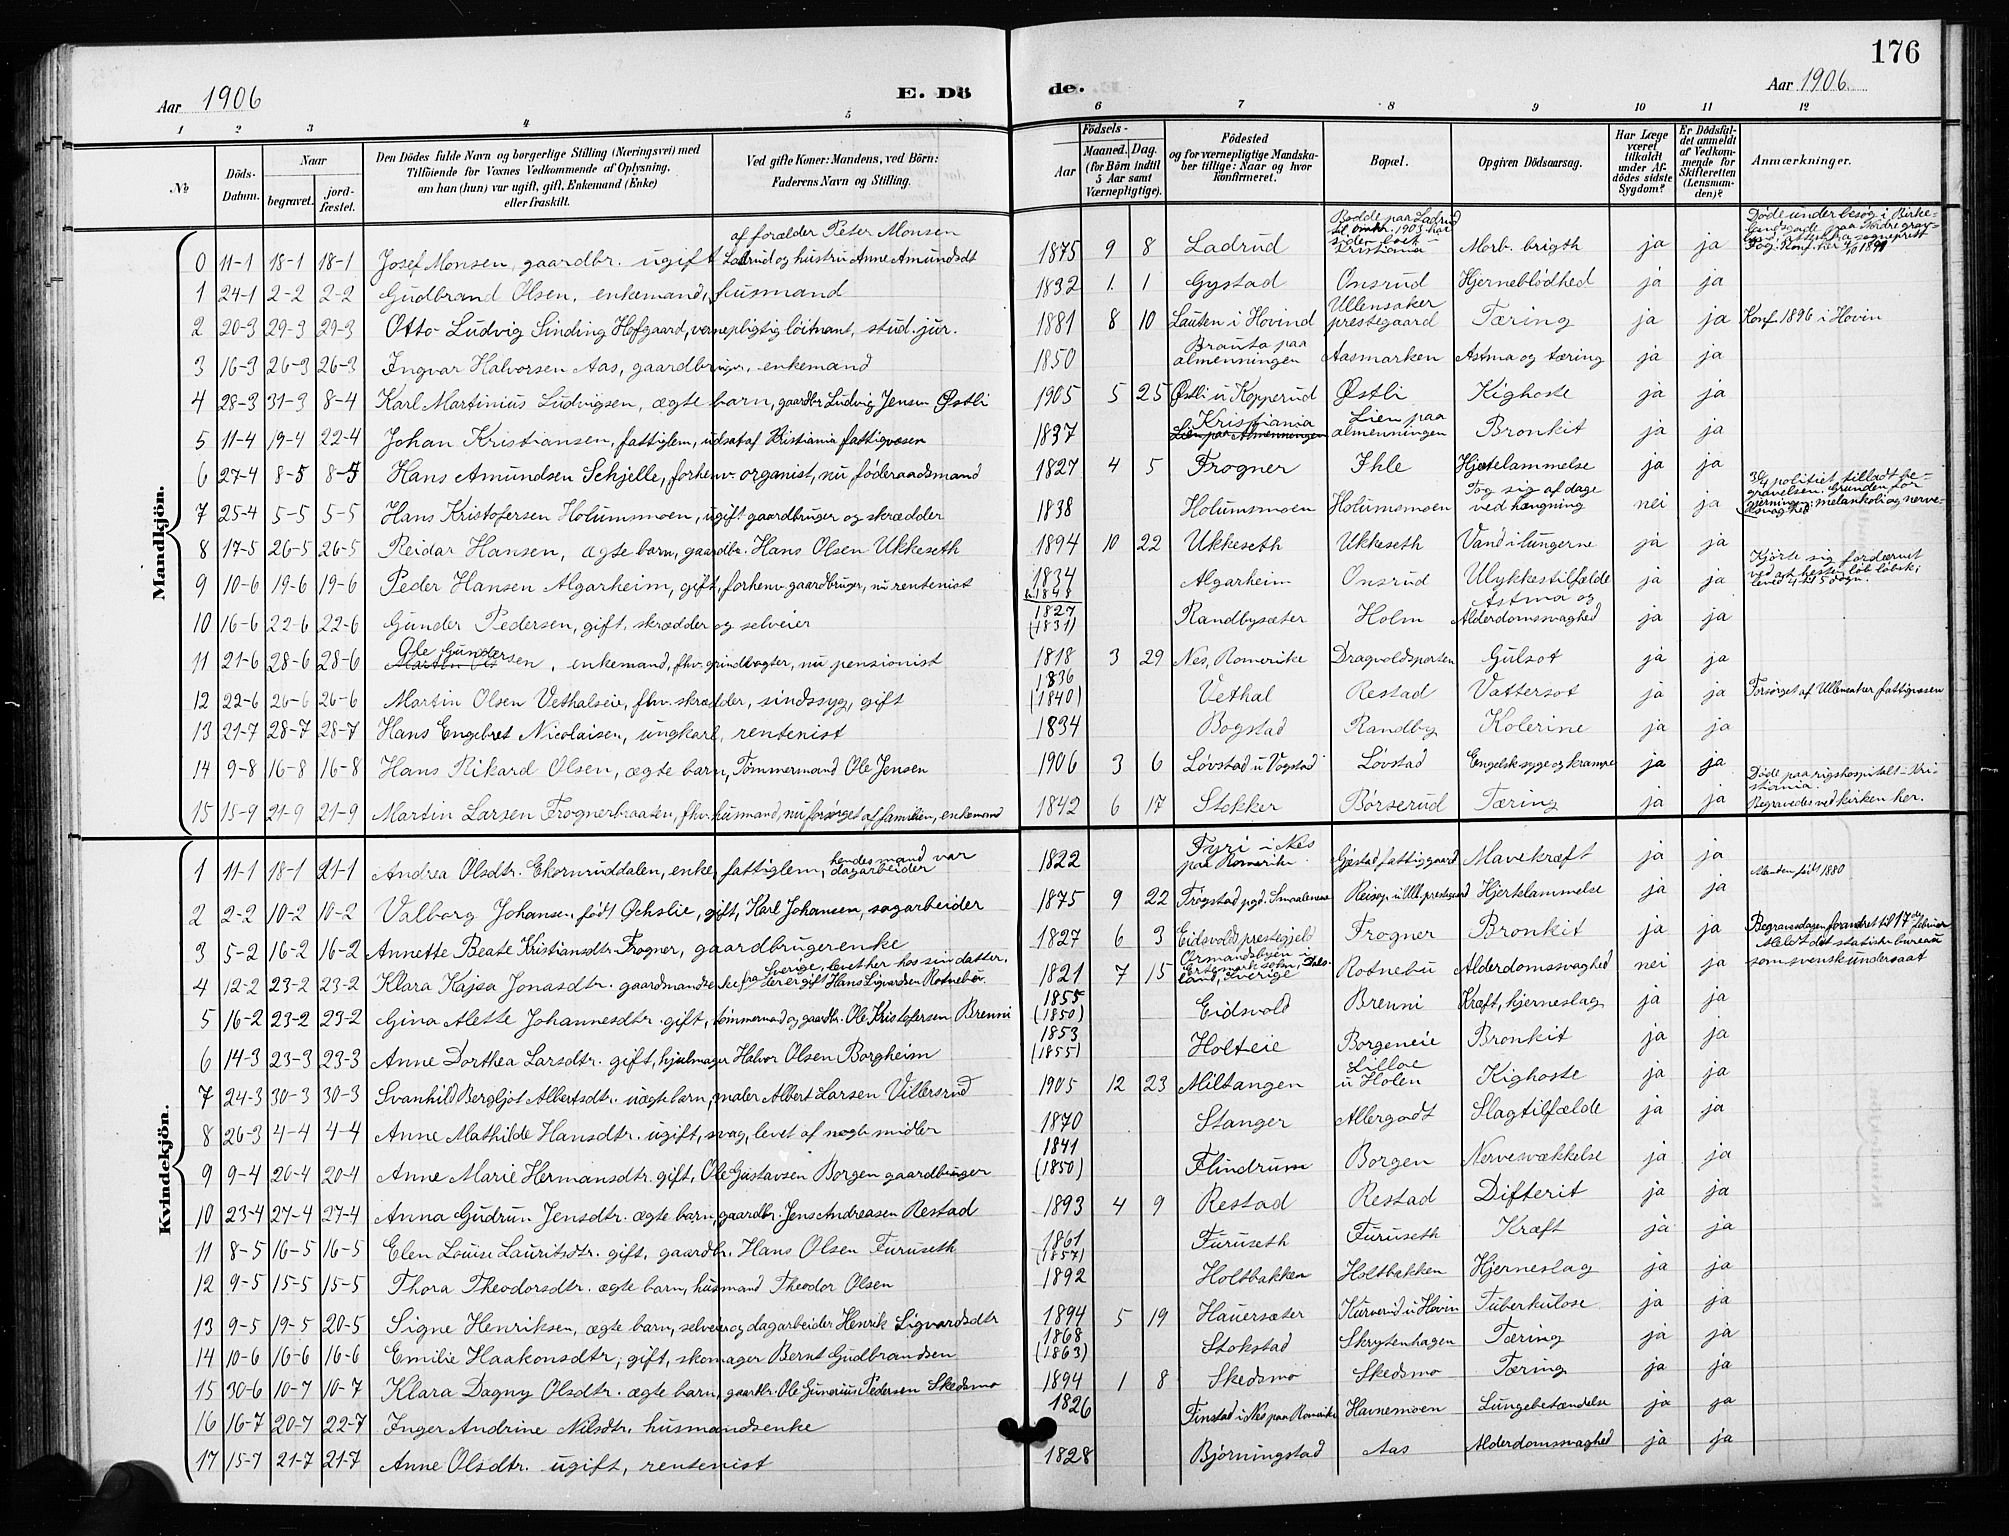 176
Aar 1906 E. Dö de. Aar 1906.
1 2 3 4 5 6 7 8 9 10 11 12
№ Döds-Datum. Naar begravet. jord-fæstet. Den Dödes fulde Navn og borgerlige Stilling (Næringsvei) med Tilföiende for Voxnes Vedkommende af Oplysning, om han (hun) var ugift, gift, Enkemand (Enke) eller fraskilt. Ved gifte Koner: Mandens, ved Börn: Faderens Navn og Stilling. Födsels- Aar Maaned. Dag. (for Börn indtil 5 Aar samt Værnepligtige). Födested og for værnepligtige Mandskaber tillige: Naar og hvor konfirmeret. Bopæl. Opgiven Dödsaarsag. Har Læge været tilkaldt under Afdödes sidste Sygdom? Er Dödsfaldet anmeldt af Vedkommende for Skifteretten (Lensmanden)? Anmærkninger.
Mandkjön.
af forælder Peter Monsen
0 11-1 18-1 18-1 Josef Monsen, gaardbr. ugift Ladrud og hustru Anne Amundsdt 1875 9 8 Ladrud Bodde paa Ladrud til omkr. 1903 har siden boet Kristiania Morb. brigth ja ja Døde under besøg i Birke-
1 24-1 2-2 2-2 Gudbrand Olsen, enkemand, husmand 1832 1 1 Gystad Onsrud Hjerneblødhed ja ja
2 20-3 29-3 29-3 Otto Ludvig Sinding Hofgaard, vernepligtig løitnant, stud. jur. 1881 8 10 Lauten i Hovind Ullensaker prestegaard Tæring ja ja Konf. 1896 i Hovin
3 16-3 26-3 26-3 Ingvar Halvorsen Aas, gaardbruger, enkemand 1850 Brauta paa almenningen Aasmarken Astma og tæring ja ja
4 28-3 31-3 8-4 Karl Martinius Ludvigsen, ægte barn, gaardbr Ludvig Jensen Østli 1905 5 25 Østli u Kopperud Østli Kighoste ja ja
5 11-4 19-4 22-4 Johan Kristiansen, fattiglem, udsat af Kristiania fattigvæsen 1837 Kristiania Lien paa Almenningen Lien paa almenningen Bronkit ja ja
6 27-4 8-5 8-5 Hans Amundsen Schjelle, forhenv. organist, nu føderaadsmand 1827 4 5 Frogner Ihle Hjertelammelse ja ja
7 25-4 5-5 5-5 Hans Kristofersen Holumsmoen, ugift gaardbruger og skrædder 1838 Holumsmoen Holumsmoen Tog sig af dage ved hængning nei ja politiet tilladt begravelsen. Grunden for gjerningen: melankoli og nervesvaghed
8 17-5 26-5 26-5 Reidar Hansen, ægte barn, gaardbr. Hans Olsen Ukkeseth 1894 10 22 Ukkeseth Ukkeseth Vand i lungerne ja ja
9 10-6 19-6 19-6 Peder Hansen Algarheim, gift, forhenv. gaardbruger, nu rentenist 1834 Algarheim Onsrud Ulykkestilfælde ja ja Kjørte sig fordærvet ved at hesten løb løbsk; leved 4 á 5 døgn.
10 16-6 22-6 22-6 Gunder Pedersen, gift, skrædder og selveier 1827 (1831) Randbysæter Holm Astma og Alderdomssvaghed ja ja
11 21-6 28-6 28-6 Ole Gundersen, enkemand, fhv. grindvogter, nu pensionist 1818 3 29 Nes, Romerike Dragvoldsporten Gulsot ja ja
12 22-6 26-6 26-6 Martin Olsen Vethalseie, fhv. skrædder, sindssyg, gift 1836 (1840) Vethal Restad Vattersot ja ja Forsørget af Ullensaker fattigvæsen
13 21-7 28-7 28-7 Hans Engebret Nicolaisen, ungkarl, rentenist 1834 Bogstad Randby Kolerine ja ja
14 9-8 16-8 16-8 Hans Rikard Olsen, ægte barn, Tømmermand Ole Jensen 1906 3 6 Løvstad u Vogstad Løvstad Engelsk syge og krampe ja ja
15 15-9 21-9 21-9 Martin Larsen Frognerbraaten, fhv. husmand, nu forsørget af familien, enkemand 1842 6 17 Stokker Børserud Tæring ja ja Døde paa rigshospitalet - Kristiania. Begravedes ved kirken her.
Kvindekjön.
1 11-1 18-1 21-1 Andrea Olsdtr. Ekornruddalen, enke, fattiglem, hendes mand var dagarbeider 1822 Fyri i Nes paa Romerike Gjestad fattiggaard Mavekræft ja ja
2 2-2 10-2 10-2 Valborg Johansen født Ochslie, gift, Karl Johansen, sagarbeider 1875 9 22 Trøgstad pgd. Smaalenene Reisop u Ull. prestegaard Hjertelammelse ja ja Manden født 1880
3 5-2 16-2 16-2 Annette Beate Kristiansdtr. Frogner, gaardbrugerenke 1827 6 3 Eidsvold prestegjeld Frogner Bronkit ja ja Begravesdagen forandret til 17de februar
4 12-2 23-2 23-2 Klara Kajsa Jonasdtr. gaardmandsenke fra Sverige, levet her hos sin datter, der er gift Hans Sigvardsen Rotnebu 1821 7 15 Ormandsbyen i Ertemark sokn, Dalsland, Sverige Rotnebu Alderdomssvaghed nei ja Meldt det statistiske bureau som svensk undersaat
5 16-2 23-2 23-2 Gina Alette Johannesdtr. gift, tømmermand og gaardbr. Ole Kristofersen Brenni 1855 (1850) Eidsvold Brenni Kræft, hjerneslag ja ja
6 14-3 23-3 23-3 Anne Dorthea Larsdtr. gift, hjulmager Halvor Olsen Borgheim 1853 (1855) Holteie Borgeneie Bronkit ja ja
7 24-3 30-3 30-3 Svanhild Bergljot Albertsdtr. uægte barn, maler Albert Larsen Villersrud 1905 12 23 Miltangen Lilloe u Holen Kighoste ja ja
8 26-3 4-4 4-4 Anne Mathilde Hansdtr. ugift, svag, levet af negle midler 1870 Stanger Allergodt Slagtilfælde ja ja
9 9-4 20-4 20-4 Anne Marie Hermansdtr. gift, Ole Gustavsen Borgen gaardbruger 1841 (1850) Flindrum Borgen Nervesvækkelse ja ja
10 23-4 27-4 27-4 Anna Gudrun Jensdtr. ægte barn, gaardbr. Jens Andreasen Restad 1893 4 9 Restad Restad Difterit ja ja
11 8-5 16-5 16-5 Elen Louise Lauritsdtr. gift, gaardbr. Hans Olsen Furuseth 1861 (1857) Furuseth Furuseth Kræft ja ja
12 9-5 15-5 15-5 Thora Theodorsdtr. ægte barn, husmand Theodor Olsen 1892 Holtbakken Holtbakken Hjerneslag ja ja
13 9-5 19-5 20-5 Signe Henriksen, ægte barn, selveier og dagarbeider Henrik Sigvardsdtr 1894 5 19 Hauersæter Kurverud u Hovin Tuberkulose ja ja
14 10-6 16-6 16-6 Emilie Haakonsdtr, gift, skomager Bernt Gudbrandsen 1868 (1863) Stokstad Skrytenhagen Tæring ja ja
15 30-6 10-7 10-7 Klara Dagny Olsdtr. ægte barn, gaardbr. Ole Gunerius Pedersen Skedsmo 1894 1 8 Skedsmo Skedsmo Tæring ja ja
16 16-7 20-7 22-7 Inger Andrine Nilsdtr. husmandsenke 1826 Finstad i Nes paa Romerike Havnemoen Lungebetændelse ja ja
17 15-7 21-7 21-7 Anne Olsdtr. ugift, rentenist 1828 Bjørningstad Aas Alderdomssvaghed ja ja